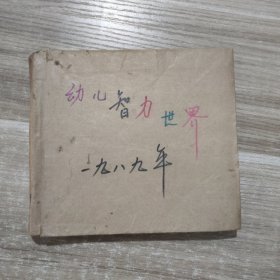 幼儿智力世界
一九八九年